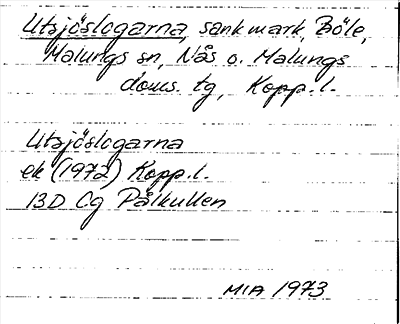 Utsjöslogarna, sank mark, Böle,
Malungs sn, Nås o. Malungs
doms. tg, Kopp. l.
Utsjöslogarna
ek (1972) Kopp. l.
13D Cg Pålkullen
MIA 1973